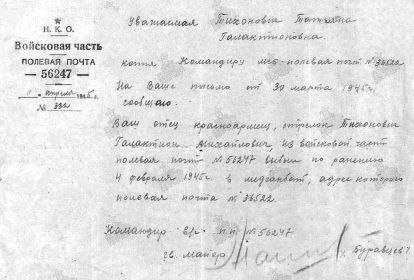 Н. К. О.
Войсковая часть
ПОЛЕВАЯ ПОЧТА
— 56247 —
апреля 1945 г.
№ 332
Уважаемая Тихонович Татьяна
Галактионовна.
копия Командиру мсб - полевая почт № 36522
На Ваше письмо от 30 марта 1945г.
сообщаю.
Ваш отец красноармеец, стрелок Тихонович
Галактион Михайлович, из войсковой части
полевая почт № 56247 выбыл по ранению
4 февраля 1945г. в медсанбат, адрес которого
полевая почта № 36522.
Командир в/ч п.п. № 56247
гв. майор Буравцев